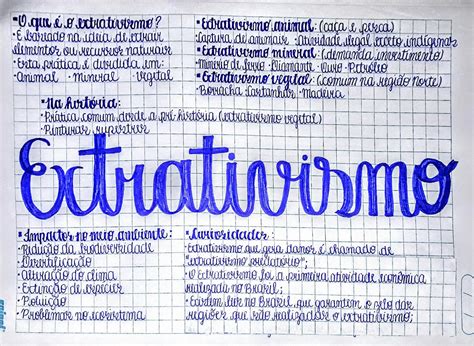 •O que é o extrativismo?
•É baseado na ideia de extrair
elementos ou recursos naturais
•Esta prática é dividida em:
Animal Mineral Vegetal
•Na história:
•Prática comum desde a pré-história (extrativismo vegetal)
•Pinturas rupestres
•Extrativismo animal: (caça e pesca)
•Captura de animais •Atividade ilegal, exceto indígenas
•Extrativismo mineral: (demanda investimento)
•Minério de ferro •Diamante •Ouro •Petróleo
•Extrativismo vegetal: (comum na região Norte)
•Borracha •Castanha •Madeira
Extrativismo
•Impactos no meio ambiente:
•Redução da biodiversidade
•Desertificação
•Alteração do clima
•Extinção de espécies
•Poluição
•Problemas no ecossistema
•Curiosidades:
•Extrativismo que gera danos é chamado de
"extrativismo predatório";
•O Extrativismo foi a primeira atividade econômica
realizada no Brasil;
•Existem leis no Brasil, que garantem o zelo das
regiões que são realizadas o extrativismo;